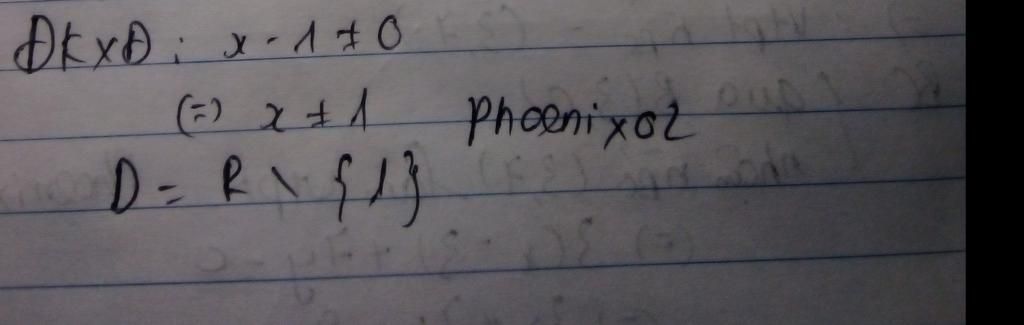 ĐKXĐ: x - 1 ≠ 0
(=) x ≠ 1 Phoenix02
D = R \ {1}